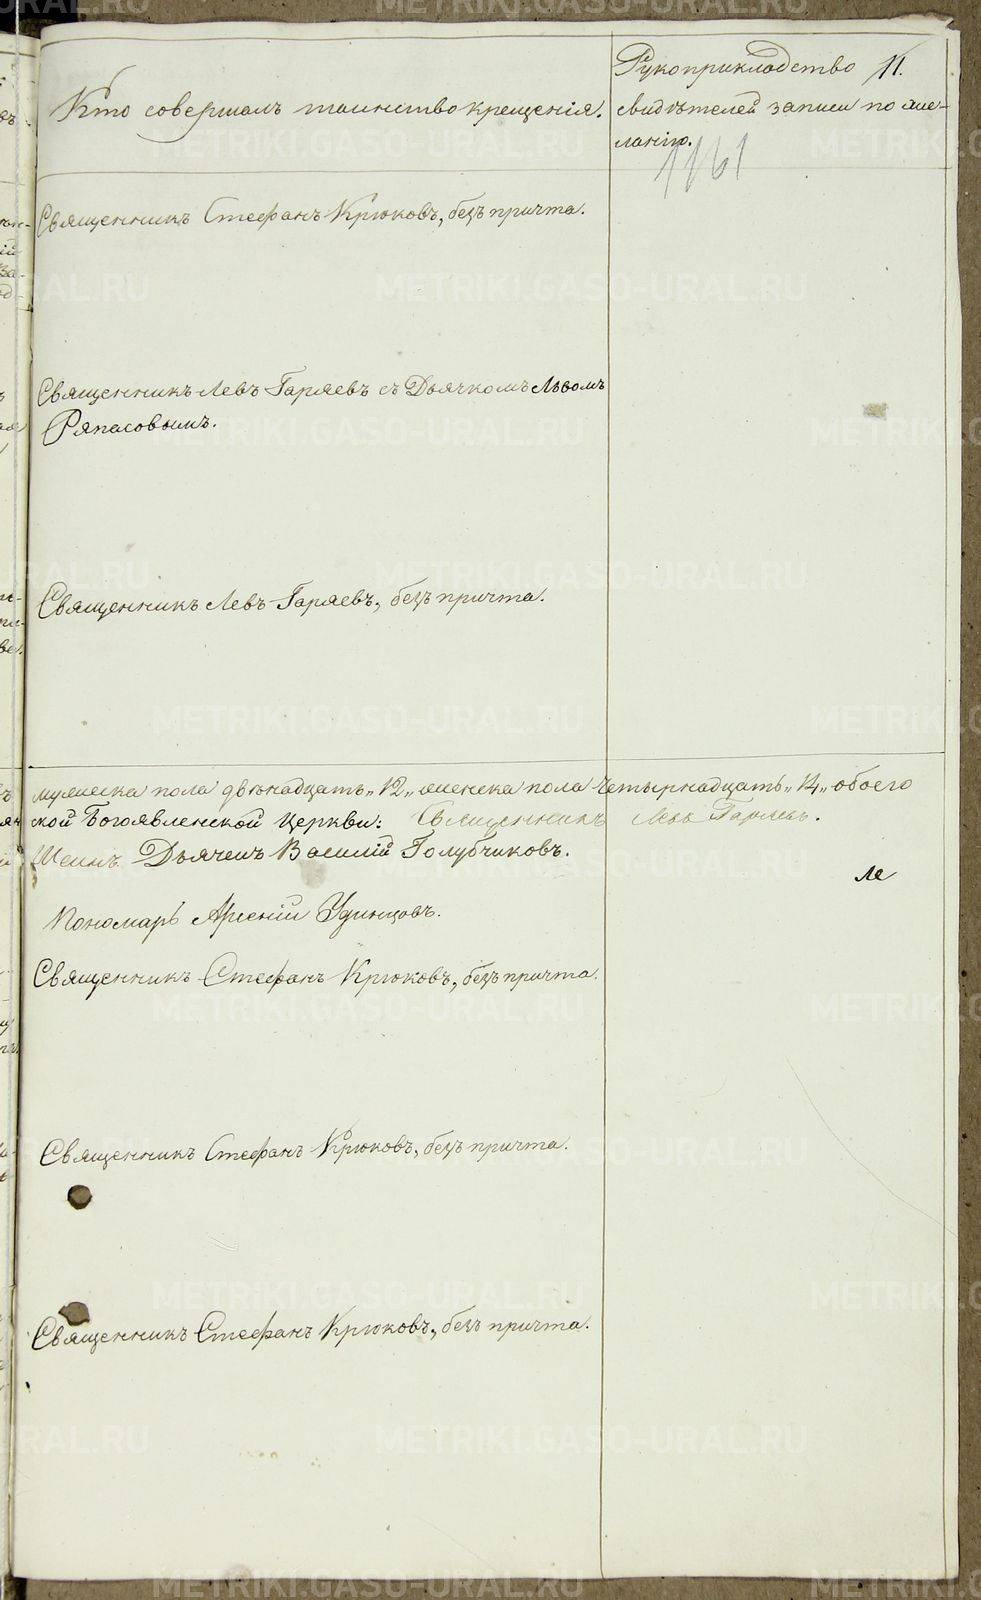 Кто совершалъ таинство крещенія.
Рукоприкладство
11.
свидѣтелей записи по же-
ланію.
1161
Священникъ Стефанъ Крюковъ, безъ причта.
Священникъ Левъ Гаряевъ съ Дьячкомъ Львомъ
Ряпасовымъ.
Священникъ Левъ Гаряевъ, безъ причта.
мужеска пола двѣнадцать „12„ женска пола четырнадцать „14„ обоего
ской Богоявленской церкви: Священникъ Левъ Гаряевъ.
Дьячекъ Василій Голубчиковъ.
Пономарь Арсеній Удинцовъ.
Священникъ Стефанъ Крюковъ, безъ причта.
Священникъ Стефанъ Крюковъ, безъ причта.
Священникъ Стефанъ Крюковъ, безъ причта.
METRIKI.GASO-URAL.RU